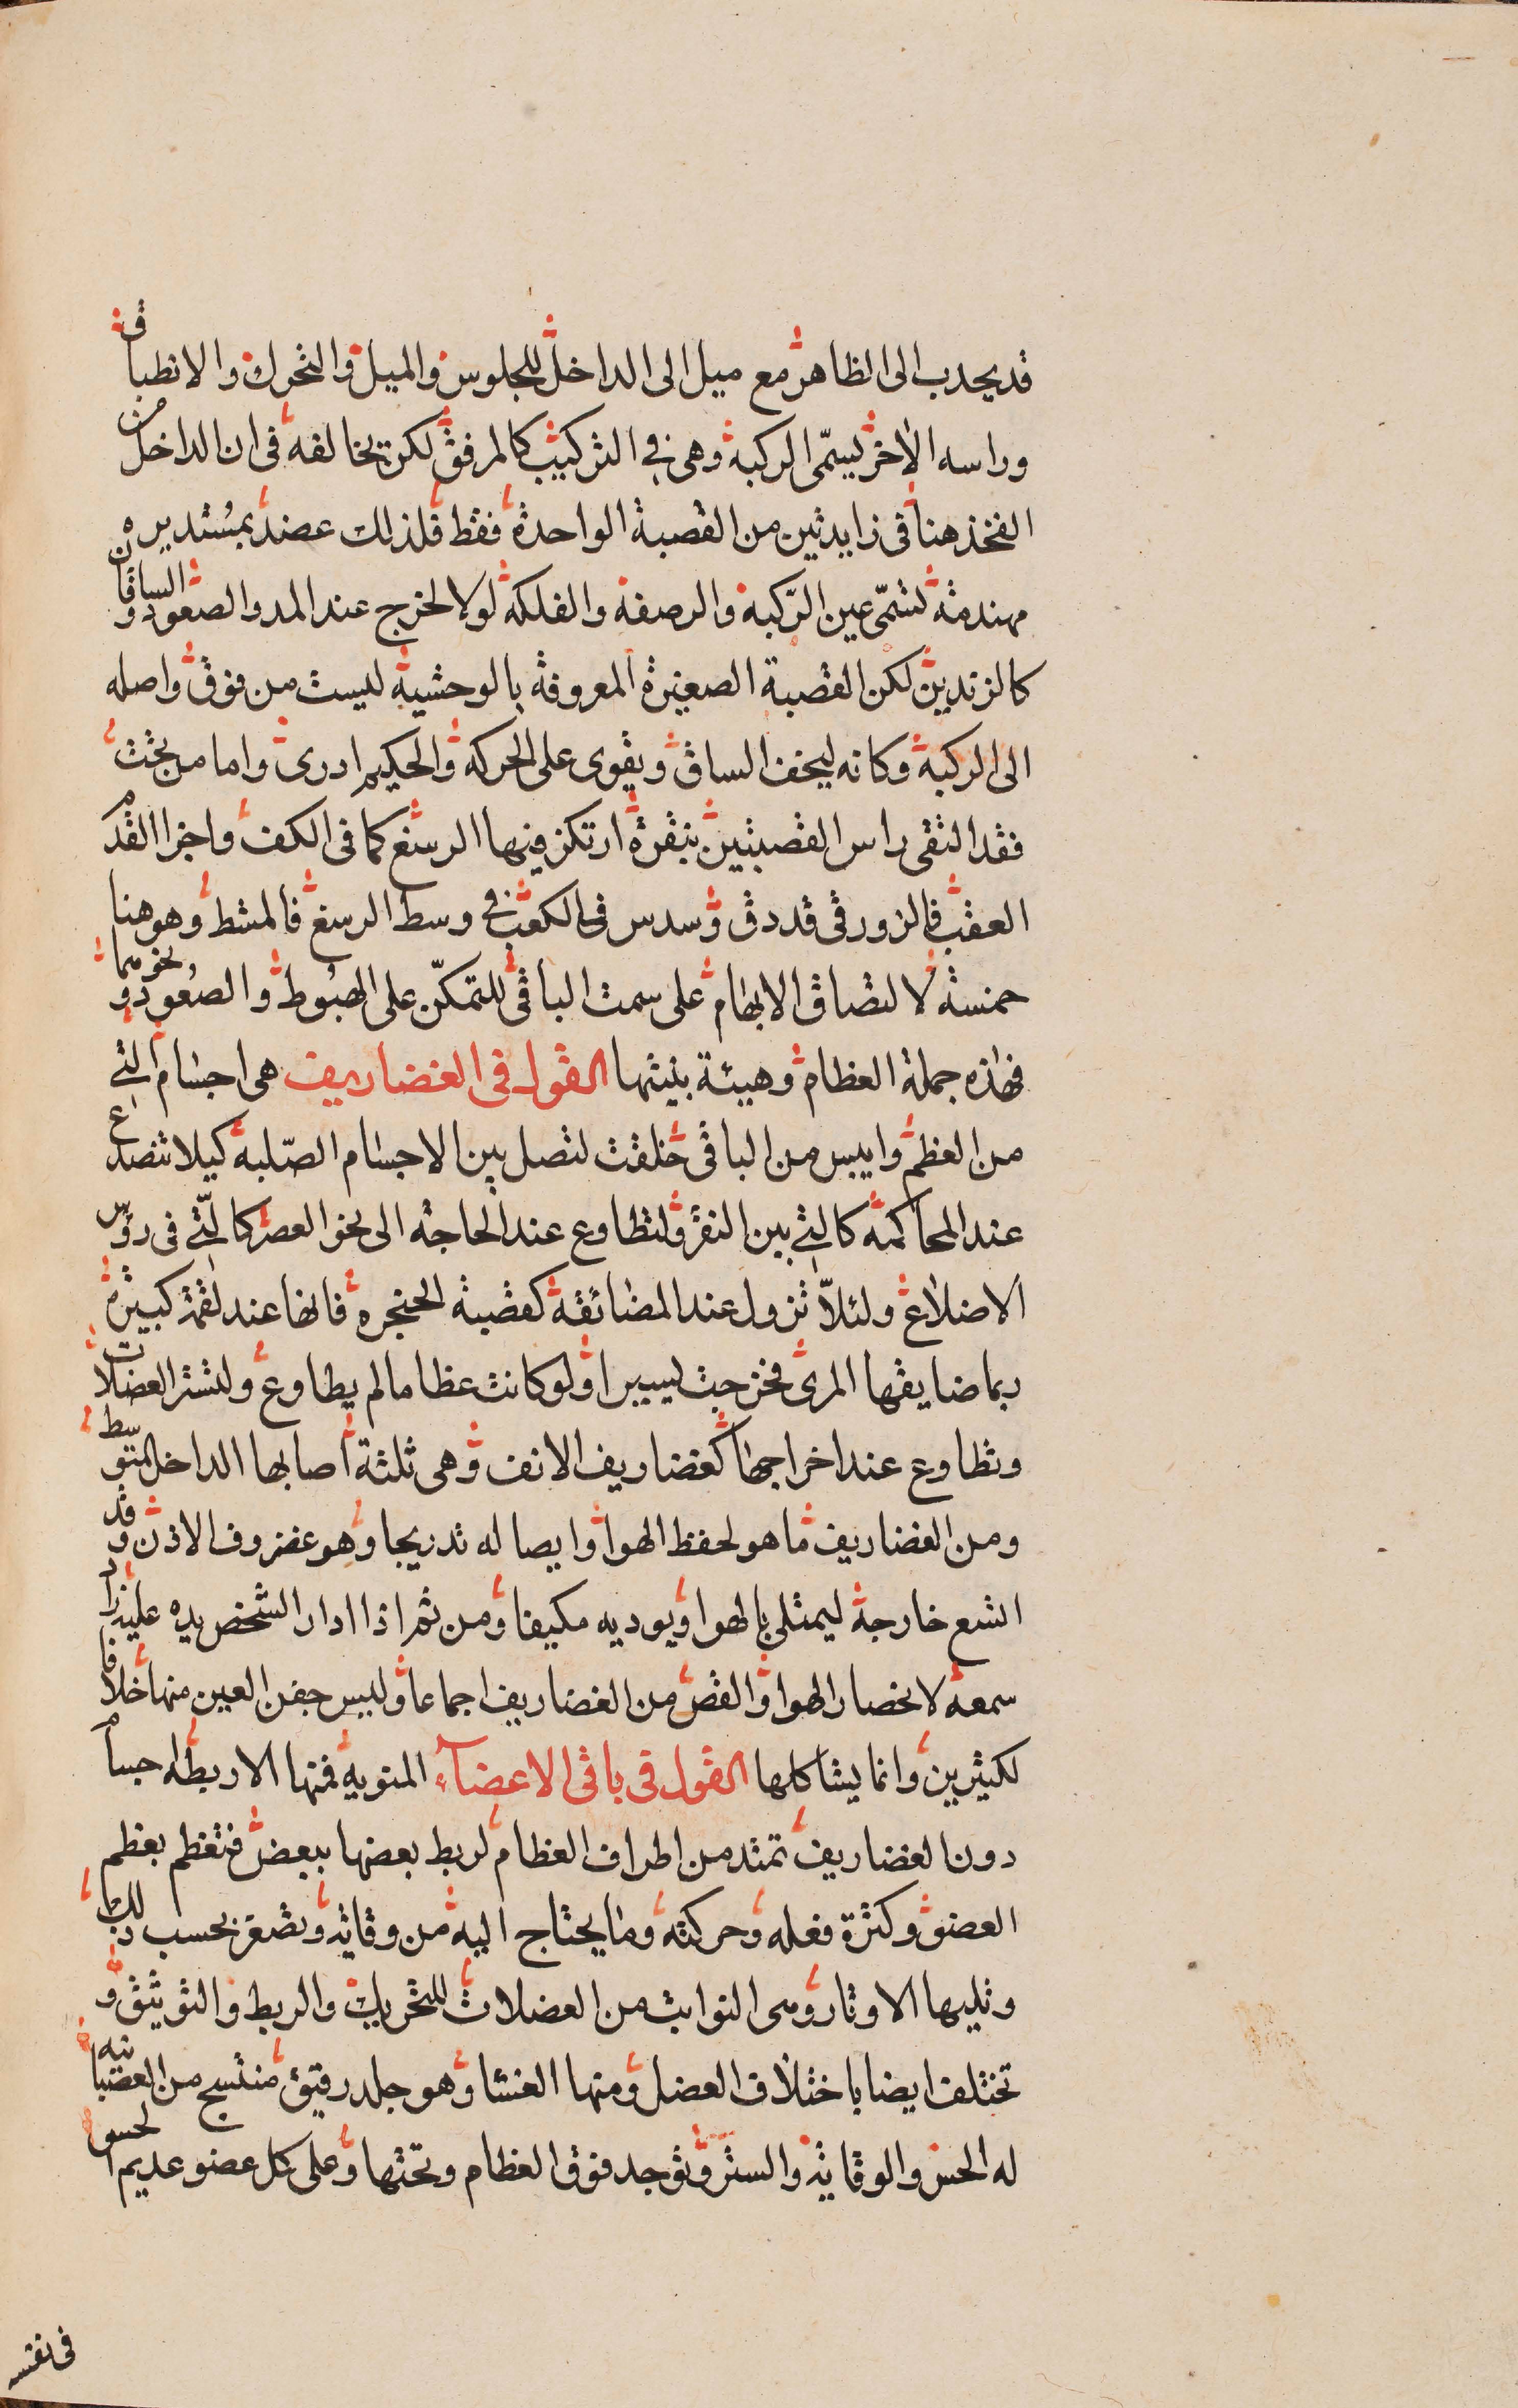 قد يحدب الى الظاهر مع ميل الى الداخل للجلوس والميل والتحرك والانطباق
وراسه الاخر يسمّى الركبة وهى فى التركيب كالمرفق لكن تخالفه فى ان الداخل من
الفخذ هنا فى زايدتين من القصبة الواحدة فقط فلذلك عضد بمستديرة
مهندمة تسمّى عين الرّكبة والرصفة والفلكة لولاه لخرج عند المد والصعود والساقان
كالزندين لكن القصبة الصغيرة المعروفة بالوحشية ليست من فوق واصله
الى الركبة وكانه ليخف الساق ويقوى على الحركة والحكيم ادرى واما من تحت
فقد التقى راس القصبتين بنقرة ارتكز فيها الرسغ كما فى الكف واخر القدم
العقب فالزورقى قد دق وسدس فى الكعب فى وسط الرسغ فالمشط وهو هنا
خمسة لالتصاق الابهام على سمت الباقى للتمكّن على الهبوط والصعود ونحوهما
فهذه جملة العظام وهيئة بنيتها القول فى الغضاريف هى اجسام الين
من العظم وايبس من الباقى خلقت لتصل بين الاجسام الصّلبة كيلا تنصدع
عند المحاكمة كالتى بين النقر ولتطاوع عند الحاجة الى نحو العصر كالّتى فى رؤس
الاضلاع ولئلاّ تزول عند المضائقة كقصبة الحنجرة فانها عند لقمة كبيرة
ربما ضايقها المرى فخرجت يسيرا ولو كانت عظاما لم يطاوع ولتستر العضلات
وتطاوع عند اخراجها كغضاريف الانف وهى ثلثة اصابها الداخل المتوسط
ومن الغضاريف ما هو لحفظ الهوا وايصاله تدريجا وهو غضروف الاذن وقد
اشع خارجة ليمتلى بالهوا ويوديه مكيفا ومن ثم اذا ادار الشخص يده عليه زاد
سمعه لانحصار الهوا والقص من الغضاريف اجماعا وليس جفن العين منها خلافا
لكثيرين وانما يشاكلها القول فى باقى الاعضآء المنوية فمنها الاربطة اجسام
دون الغضاريف تمتد من اطراف العظام لربط بعضها ببعض فتعظم بعظم
العضو وكثرة فعله وحركته وما يحتاج اليه من وقاية وتصغر بحسب ذلك
وتليها الاوتار وهى النوابت من العضلات للتحريك والربط والتوثيق و
تختلف ايضا باختلاف العضل ومنها الغشا وهو جلد رقيق منتسج من العصبانيه
له الحس والوقاية والستر وتوجد فوق العظام وتحتها وعلى كل عضو عديم الحس
فى نفسه